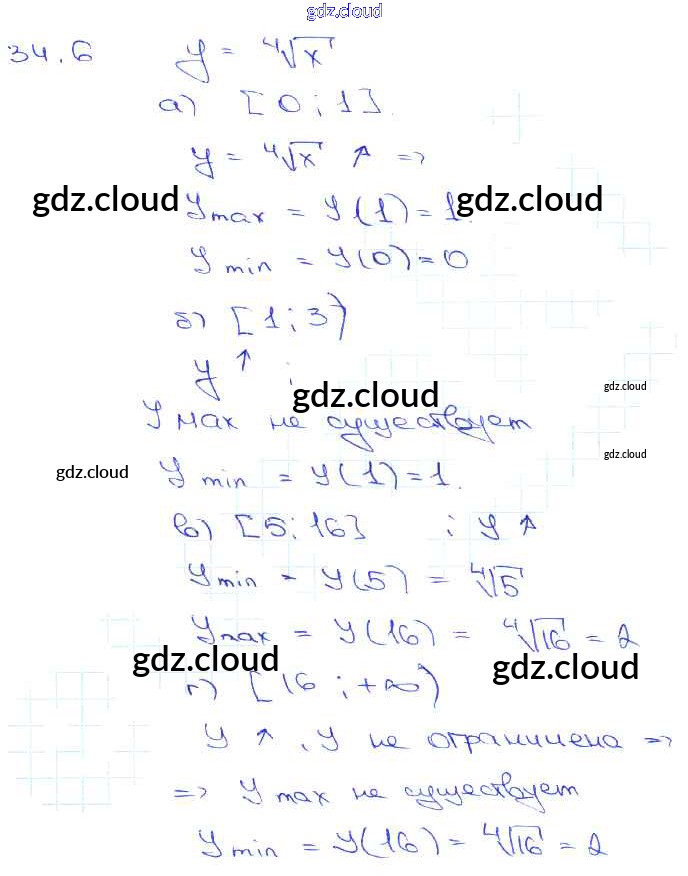 gdz.cloud
34.6 y = ⁴√x
а) [0; 1].
y = ⁴√x ↑ =>
gdz.cloud ymax = y(1) = 1. gdz.cloud
ymin = y(0) = 0
б) [1; 3)
y ↑ ;
gdz.cloud gdz.cloud
yмах не существует
gdz.cloud
gdz.cloud ymin = y(1) = 1.
в) [5; 16] ; y ↑
ymin = y(5) = ⁴√5
ymax = y(16) = ⁴√16 = 2
gdz.cloud gdz.cloud
г) [16; +∞)
y ↑, y не ограничена =>
=> ymax не существует
ymin = y(16) = ⁴√16 = 2